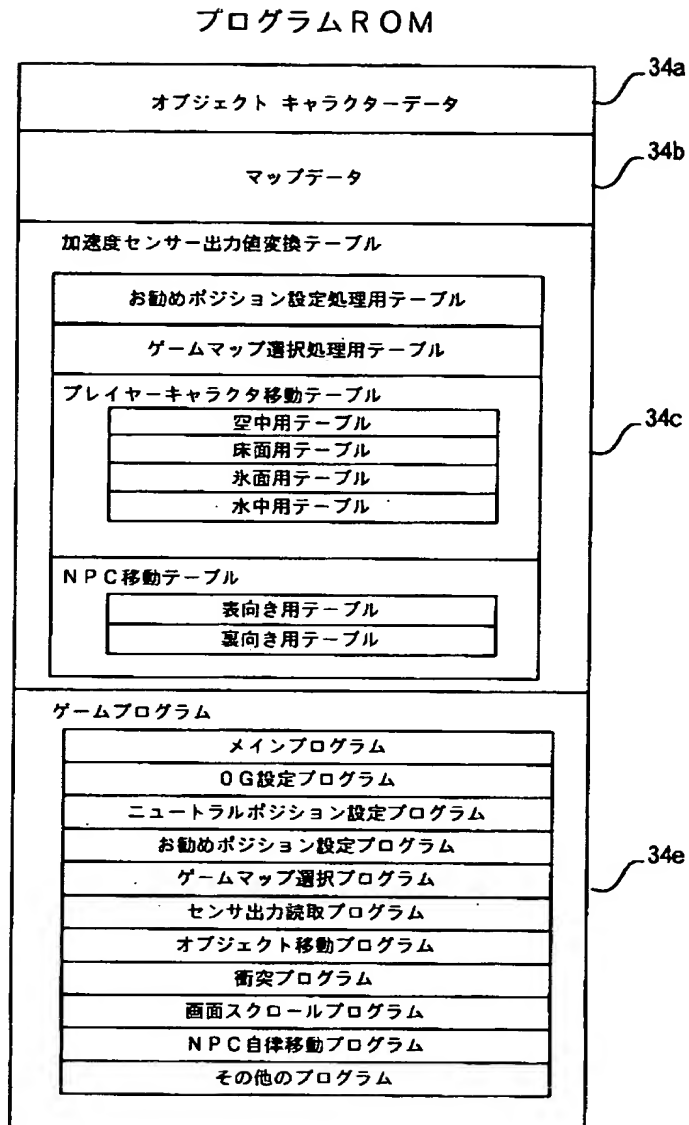 プログラムROM
34a
オブジェクト キャラクターデータ
34b
マップデータ
加速度センサー出力値変換テーブル
お勧めポジション設定処理用テーブル
ゲームマップ選択処理用テーブル
プレイヤーキャラクタ移動テーブル
34c
空中用テーブル
床面用テーブル
氷面用テーブル
水中用テーブル
NPC移動テーブル
表向き用テーブル
裏向き用テーブル
ゲームプログラム
メインプログラム
0G設定プログラム
ニュートラルポジション設定プログラム
お勧めポジション設定プログラム
34e
ゲームマップ選択プログラム
センサ出力読取プログラム
オブジェクト移動プログラム
衝突プログラム
画面スクロールプログラム
NPC自律移動プログラム
その他のプログラム